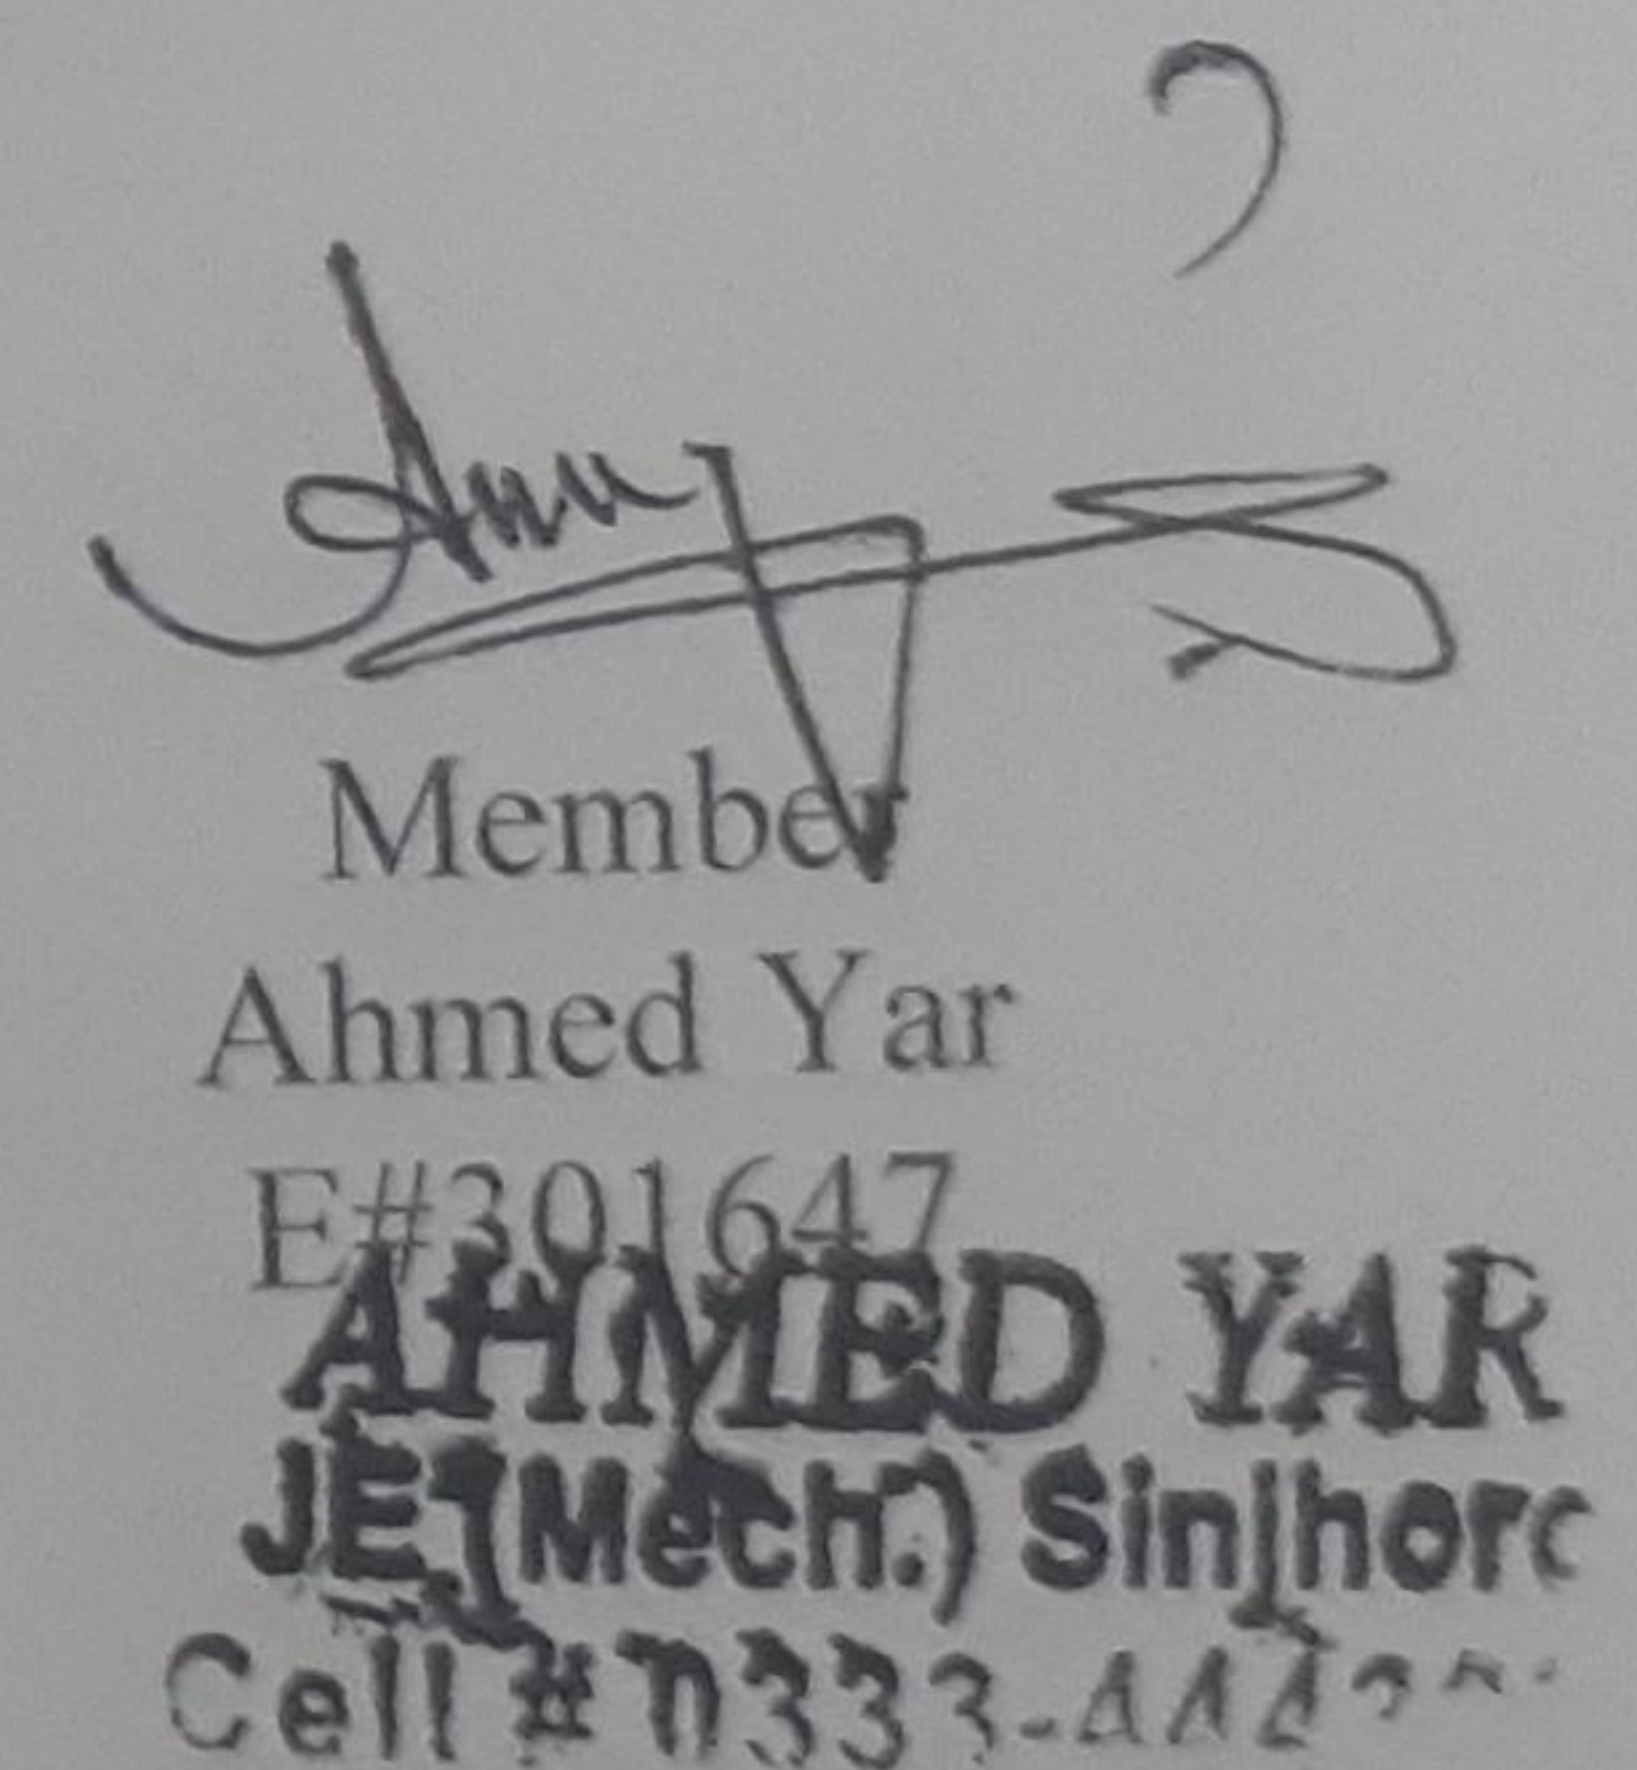 Member
Ahmed Yar
E#301647
AHMED YAR
JE (Mech.) Sinjhoro
Cell # 0333-